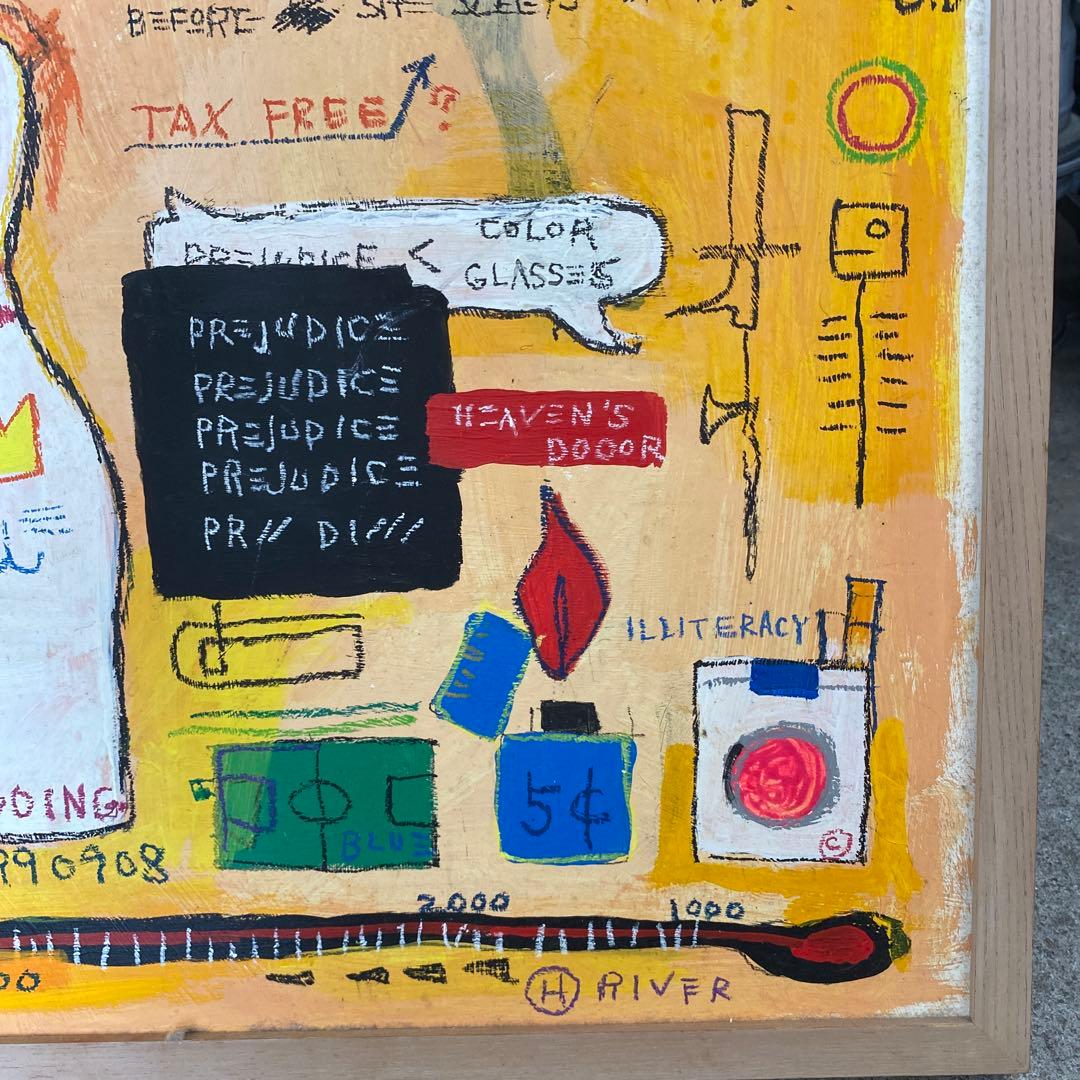 BEFORE SHE SLEEPS
TAX FREE ?
COLOR
PREJUDICE < GLASSES
PREJUDICE
PREJUDICE
PREJUDICE
PREJUDICE
PR// DI////
HEAVEN'S
DOOOR
ILLITERACY
5¢
BLUE
©
DDING
990908
2.000
1000
00
H RIVER